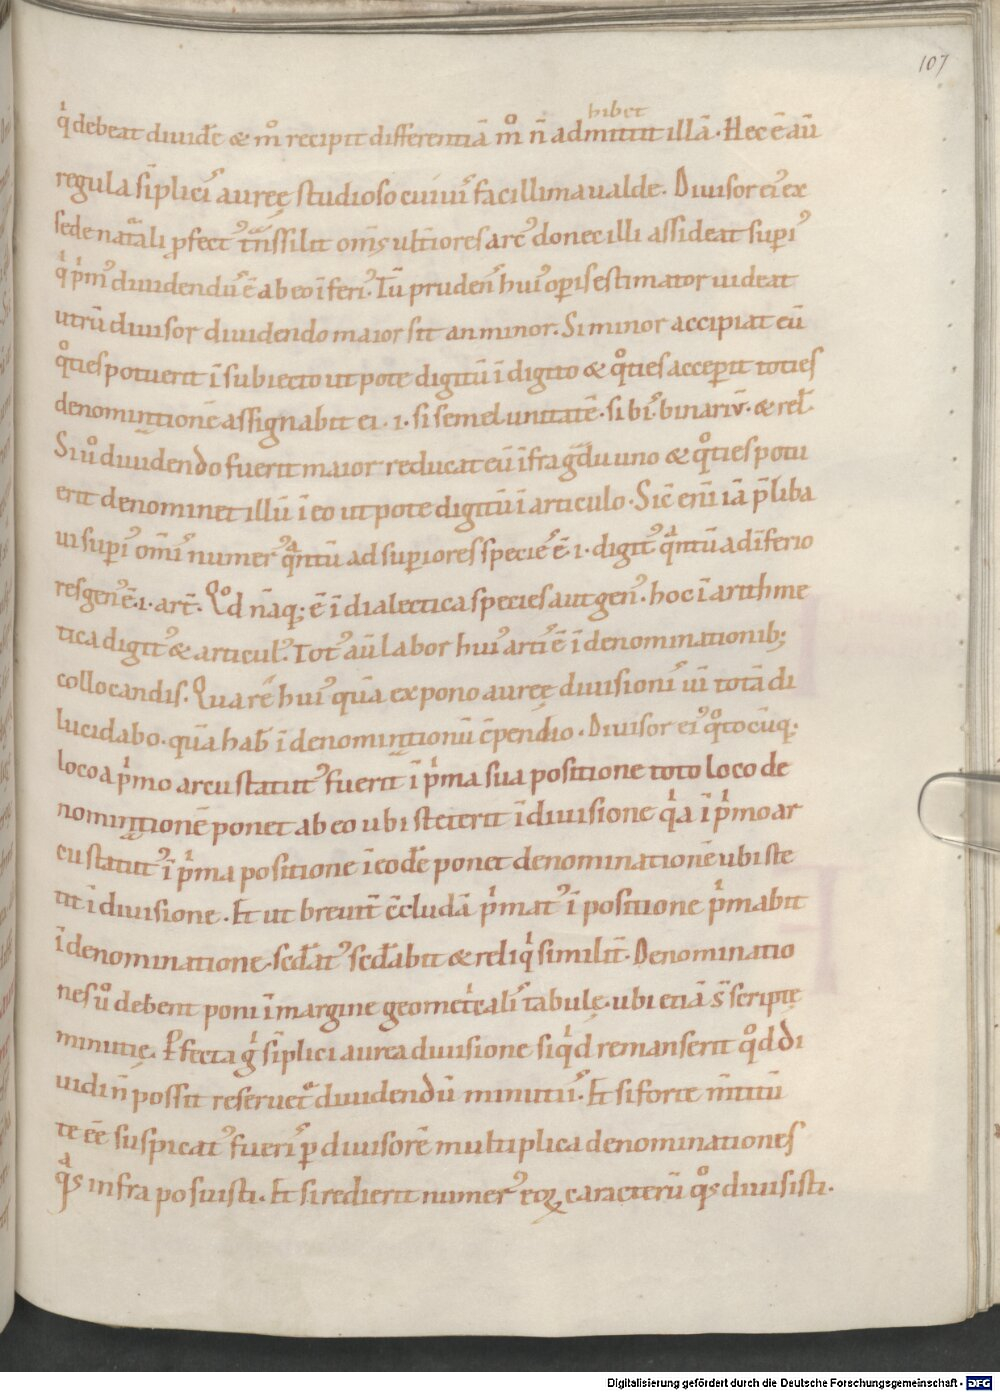 107
hibet
q̍ debeat diuid̄e & m̊ recipit differentiā m̊ n̄ admittit illā. Hec ē aū
regula s̄iplici᷒ aureę studioso cuiui᷒ facillima ualde. Diuisor ei᷒ ex
sede natᷓali p̄fect᷒ tᷓnssilit om̄s ult̄iores arc᷒ donec illi assideat supi᷒
q̍ p̍m᷒ diuidendu᷒ ē ab eo īferi᷒. Tū pruden᷒ hui᷒ opis estimator uideat
utrū diuisor diuidendo maior sit an minor. Si minor accipiat eū
q̊ties potuerit ī subiecto ut pote digitū ī digito & q̊ties acceperit toties
denominationē assignabit ei .i. si semel unitatē. si bi᷒ binariū. & rel̄.
Si ů diuidendo fuerit maior reducat eū īfra gᷓdu uno & q̊ties potu
erit denominet illū ī eo ut pote digitū ī articulo. Sic̄ eni̅ iā p̄liba
ui supi᷒ om̄i᷒ numer᷒ qᷓntū ad superiores specie᷒ ē .i. digit᷒ qᷓntū ad īferio
res gen᷒ ē .i. art̄. Qd̊ nāq; ē ī dialectica species aut gen᷒. hoc ī arithme
tica digit᷒ & articul᷒. Tot᷒ aū labor hui᷒ arti᷒ ē ī denominationib;
collocandis. Quare᷒ hui᷒ quā expono aureę diuisioni᷒ uī totā di
lucidabo. quā hab̄ ī denominationū cōpendio. Diuisor ei᷒ q̊tocūq;
loco a p̍mo arcu statut᷒ fuerit ī p̍ma sua positione toto loco de
nominationē ponet ab eo ubi steterit ī diuisione q̍a ī p̍mo ar
cu statut᷒ ī p̍ma positione ī eod̄e ponet denominationē ubi ste
tit ī diuisione. Et ut breuit̄ c̄cludā p̍mat᷒ ī positione p̍mabit
ī denominatione. sec̄dat᷒ sec̄dabit & reliq̍ similit̄. Denominatio
nes ů debent poni ī margine geomet̍cali᷒ tabulę. ubi etiā s̄ scriptę
minutię. Pfecta g̍ s̄iplici aurea diuisione siq̍d remanserit q̊d di
uidi n̄ possit reseruet᷒ diuidendū minutii᷒. Et si forte m̄titū
te ēe suspicat᷒ fueri᷒ p diuisorē multiplica denominationes
qᷓs infra posuisti. Et si redierit numer᷒ eoꝝ caracterū q̊s diuisisti.
Digitalisierung gefördert durch die Deutsche Forschungsgemeinschaft - DFG